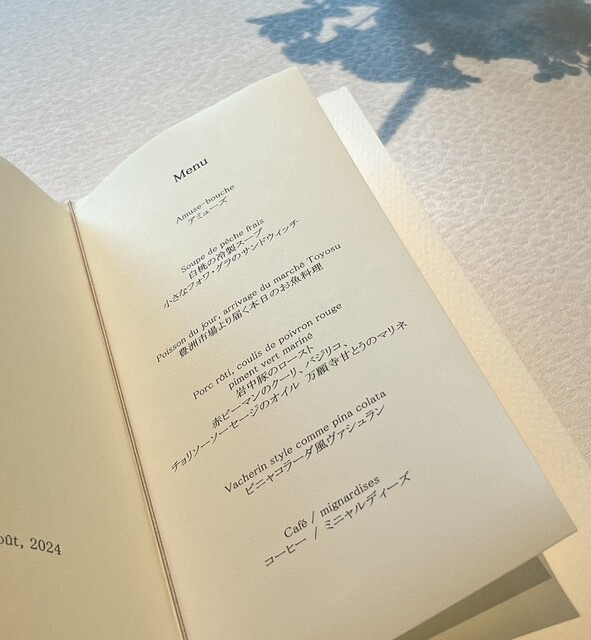 Menu
Amuse-bouche
アミューズ
Soupe de pêche frais
白桃の冷製スープ
小さなフォワ・グラのサンドウィッチ
Poisson du jour, arrivage du marché Toyosu
豊洲市場より届く本日のお魚料理
Porc rôti, coulis de poivron rouge
piment vert mariné
岩中豚のロースト
赤ピーマンのクーリ、バジリコ、
チョリソーソーセージのオイル 万願寺甘とうのマリネ
Vacherin style comme pina colata
ピニャコラーダ風ヴァシュラン
Café / mignardises
コーヒー / ミニャルディーズ
oût, 2024